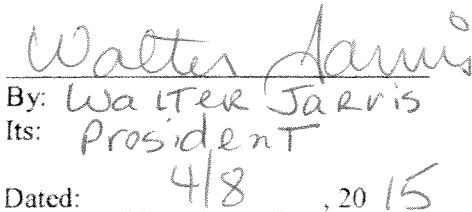 Walter Jarvis
By: WalTeR JaRvis
Its: PresidenT
Dated: 4/8, 20 15